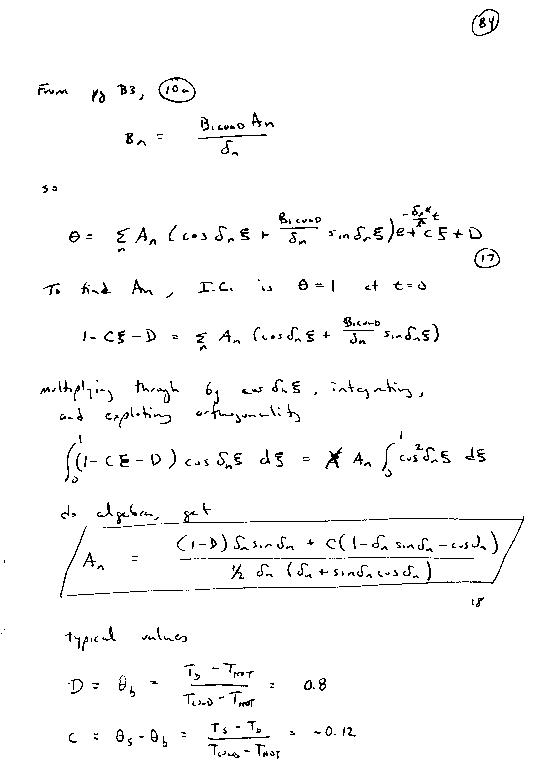 B4
From pg B3, 10a
Bₙ = Bi_COLD Aₙ / δₙ
so
θ = Σₙ Aₙ (cos δₙξ + Bi_COLD/δₙ sin δₙξ) e^(-δₙ² t) + Cξ + D
17
To find Aₙ, I.C. is θ = 1 at t=0
1 - Cξ - D = Σₙ Aₙ (cos δₙξ + Bi_COLD/δₙ sin δₙξ)
multiplying through by cos δₙξ, integrating,
and exploiting orthogonality
∫₀¹ (1 - Cξ - D) cos δₙξ dξ = Aₙ ∫₀¹ cos² δₙξ dξ
do algebra, get
Aₙ = (1-D) δₙ sin δₙ + C(1 - δₙ sin δₙ - cos δₙ) / ½ δₙ (δₙ + sin δₙ cos δₙ)
18
typical values
D = θ_b = T_b - T_HOT / T_COLD - T_HOT = 0.8
C = θ_s - θ_b = T_s - T_b / T_COLD - T_HOT = -0.12